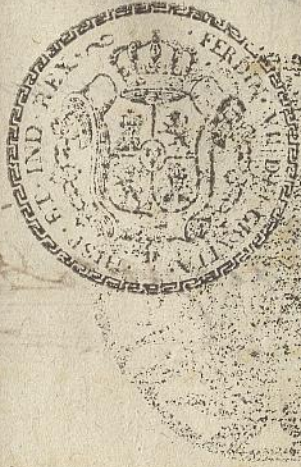 FERDIN · VII DEI GRATIA · HISP · ET · IND · REX ·